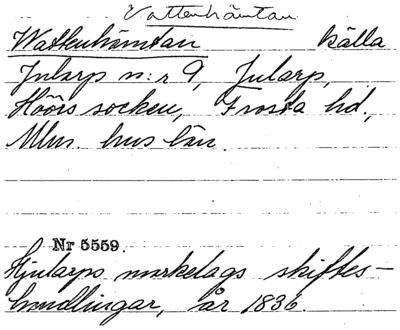 Vattenhämtan
Wattenhämtan källa
Jularp n:r 9, Jularp,
Höörs socken, Frosta hd.,
Mlm. hus län.
Nr 5559.
Hjularps markelags skiftes-
handlingar, år 1836.